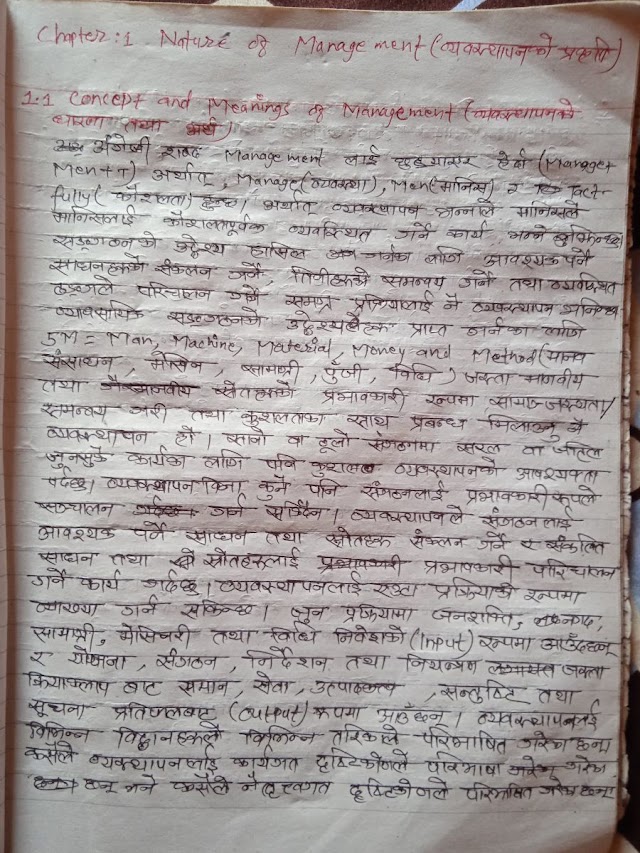 Chapter:1 Nature of Management (व्यवस्थापनको प्रकृति)
1.1 Concept and Meanings of Management (व्यवस्थापनको
धारणा तथा अर्थ)
अंग्रेजी शब्द Management लाई छुट्याएर हेर्दा (Manage+
Men+T) अर्थात्, Manage(व्यवस्था), Men(मानिस) र Tact-
fully (कौशलता) हुन्छ। अर्थात् व्यवस्थापन भन्नाले मानिसले
मानिसलाई कौशलतापूर्वक व्यवस्थित गर्ने कार्य भन्ने बुझिन्छ।
सङ्गठनको उद्देश्य हासिल गर्नका लागि आवश्यक पर्ने
साधनहरुको संकलन गर्ने, तिनीहरुको समन्वय गर्ने तथा व्यवस्थित
ढङ्गले परिचालन गर्ने समग्र प्रक्रियालाई नै व्यवस्थापन भनिन्छ
व्यावसायिक सङ्गठनको उद्देश्यहरु प्राप्त गर्नका लागि
5M = Man, Machine, Material, Money and Method (मानव
संसाधन, मेसिन, सामाग्री, पुँजी, विधि) जस्ता मानवीय
तथा गैरमानवीय स्रोतहरुको प्रभावकारी रूपमा सामाञ्जस्यता/
समन्वय गरी तथा कुशलताका साथ प्रबन्ध मिलाउनु नै
व्यवस्थापन हो। सानो वा ठूलो संगठनमा सरल वा जटिल
जुनसुकै कार्यका लागि पनि कुशल व्यवस्थापनको आवश्यकता
पर्दछ। व्यवस्थापन बिना कुनै पनि संगठनलाई प्रभावकारी रूपले
सञ्चालन गर्न सकिँदैन। व्यवस्थापनले संगठनलाई
आवश्यक पर्ने साधन तथा स्रोतहरु संकलन गर्ने र संकलित
साधन तथा स्रोतहरुलाई प्रभावकारी परिचालन
गर्ने कार्य गर्दछ। व्यवस्थापनलाई एउटा प्रक्रियाको रूपमा
व्याख्या गर्न सकिन्छ। जुन प्रक्रियामा जनशक्ति,
सामाग्री, मेसिनरी तथा विधि निवेशको (Input) रूपमा आउँदछन्
र योजना, संगठन, निर्देशन तथा नियन्त्रण जस्ता
क्रियाकलाप बाट समान, सेवा, उत्पादकत्व, सन्तुष्टि तथा
सुचना प्रतिफलबाट (output) रूपमा आउँछन्। व्यवस्थापनलाई
विभिन्न विद्वानहरुले विभिन्न तरिकाले परिभाषित गरेका छन्।
कसैले व्यवस्थापनलाई कार्यगत दृष्टिकोणले परिभाषा गरेका
छन् भने कसैले नेतृत्वगत दृष्टिकोणले परिभाषित गरेका छन्।